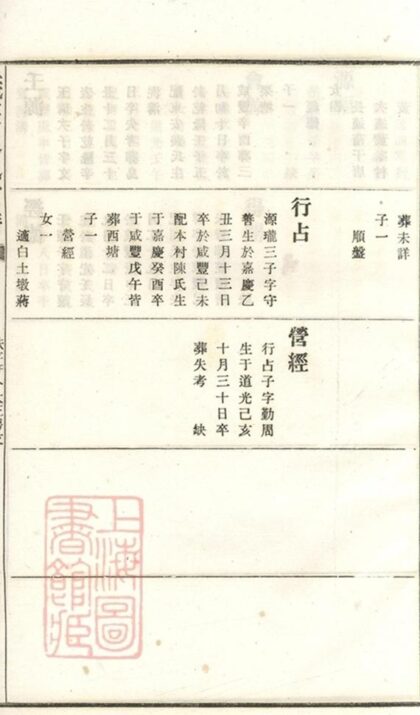 葬未詳
子一
順盤
行占
源瓏三子字守
善生於嘉慶乙
丑三月十三日
卒於咸豐己未
配本村陳氏生
于嘉慶癸酉卒
于咸豐戊午皆
葬西塘
子一
營經
女一
適白土墩蔣
營經
行占子字勤周
生于道光己亥
十月三十日卒
葬失考 缺
上海圖
書館藏